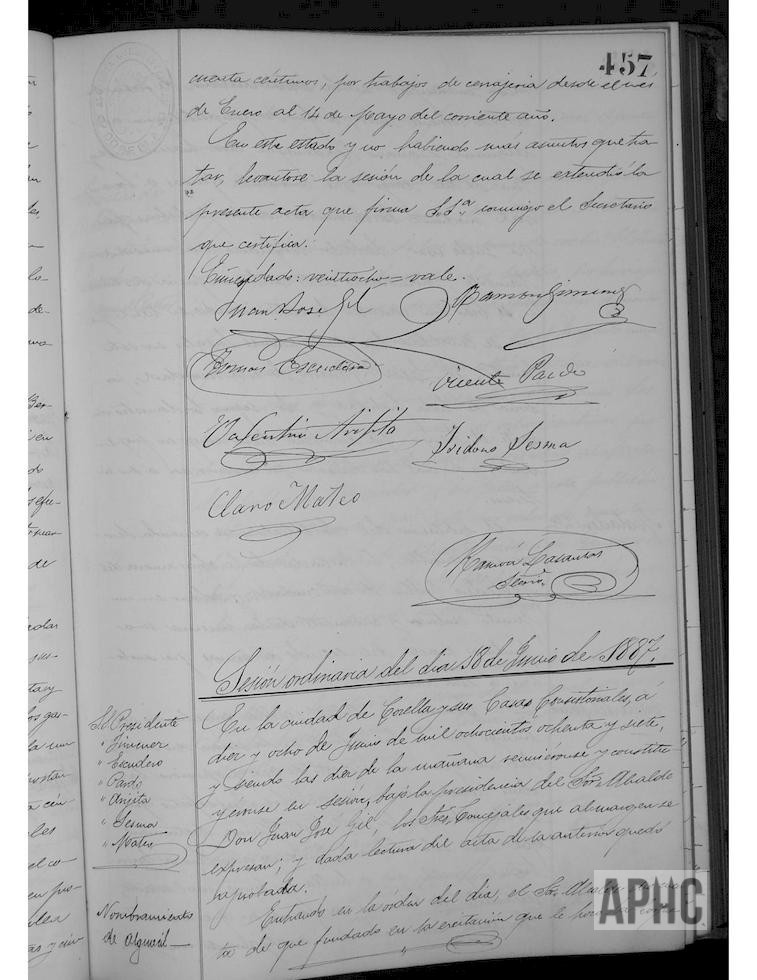 457
cuenta céntimos, por trabajos de cerrajeria desde el mes
de Enero al 14 de Mayo del corriente año.
En este estado y no habiendo más asuntos que tra
tar, levantose la sesión de la cual se extendió la
presente acta que firma S.S.ª conmigo el Secretario
que certifica.
Enmendado: veintiocho = vale.
Juan Jose Gil
Ramon Gimenez
Tomas Escudero
Vicente Pardo
Valentin Arijita
Isidoro Sesma
Claro Mateo
Ramón Lasantas
Srio
Sesión ordinaria del dia 18 de Junio de 1887.
Sr. Presidente
" Jimenez
" Escudero
" Pardo
" Arijita
" Sesma
" Mateo
En la ciudad de Corella y sus Casas Consistoriales, á
diez y ocho de Junio de mil ochocientos ochenta y siete,
y siendo las diez de la mañana reuniéronse y constitu
yeronse en sesión, bajo la presidencia del Señor Alcalde
Don Juan José Gil, los Sres. Concejales que al margen se
expresan; y dada lectura del acta de la anterior quedó
aprobada.
Nombramiento
de alguacil
Entrando en la órden del dia, el Sor. Alcalde
ta de que fundado en la escitación que le
APHC